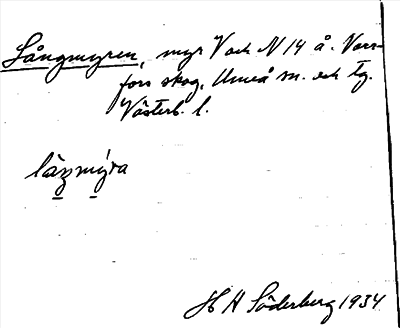 Långmyren, myr V och N 14 å. Vars-
fors skog, Umeå sn. och tg.
Västerb. l.
långmýra
H H Söderberg 1934